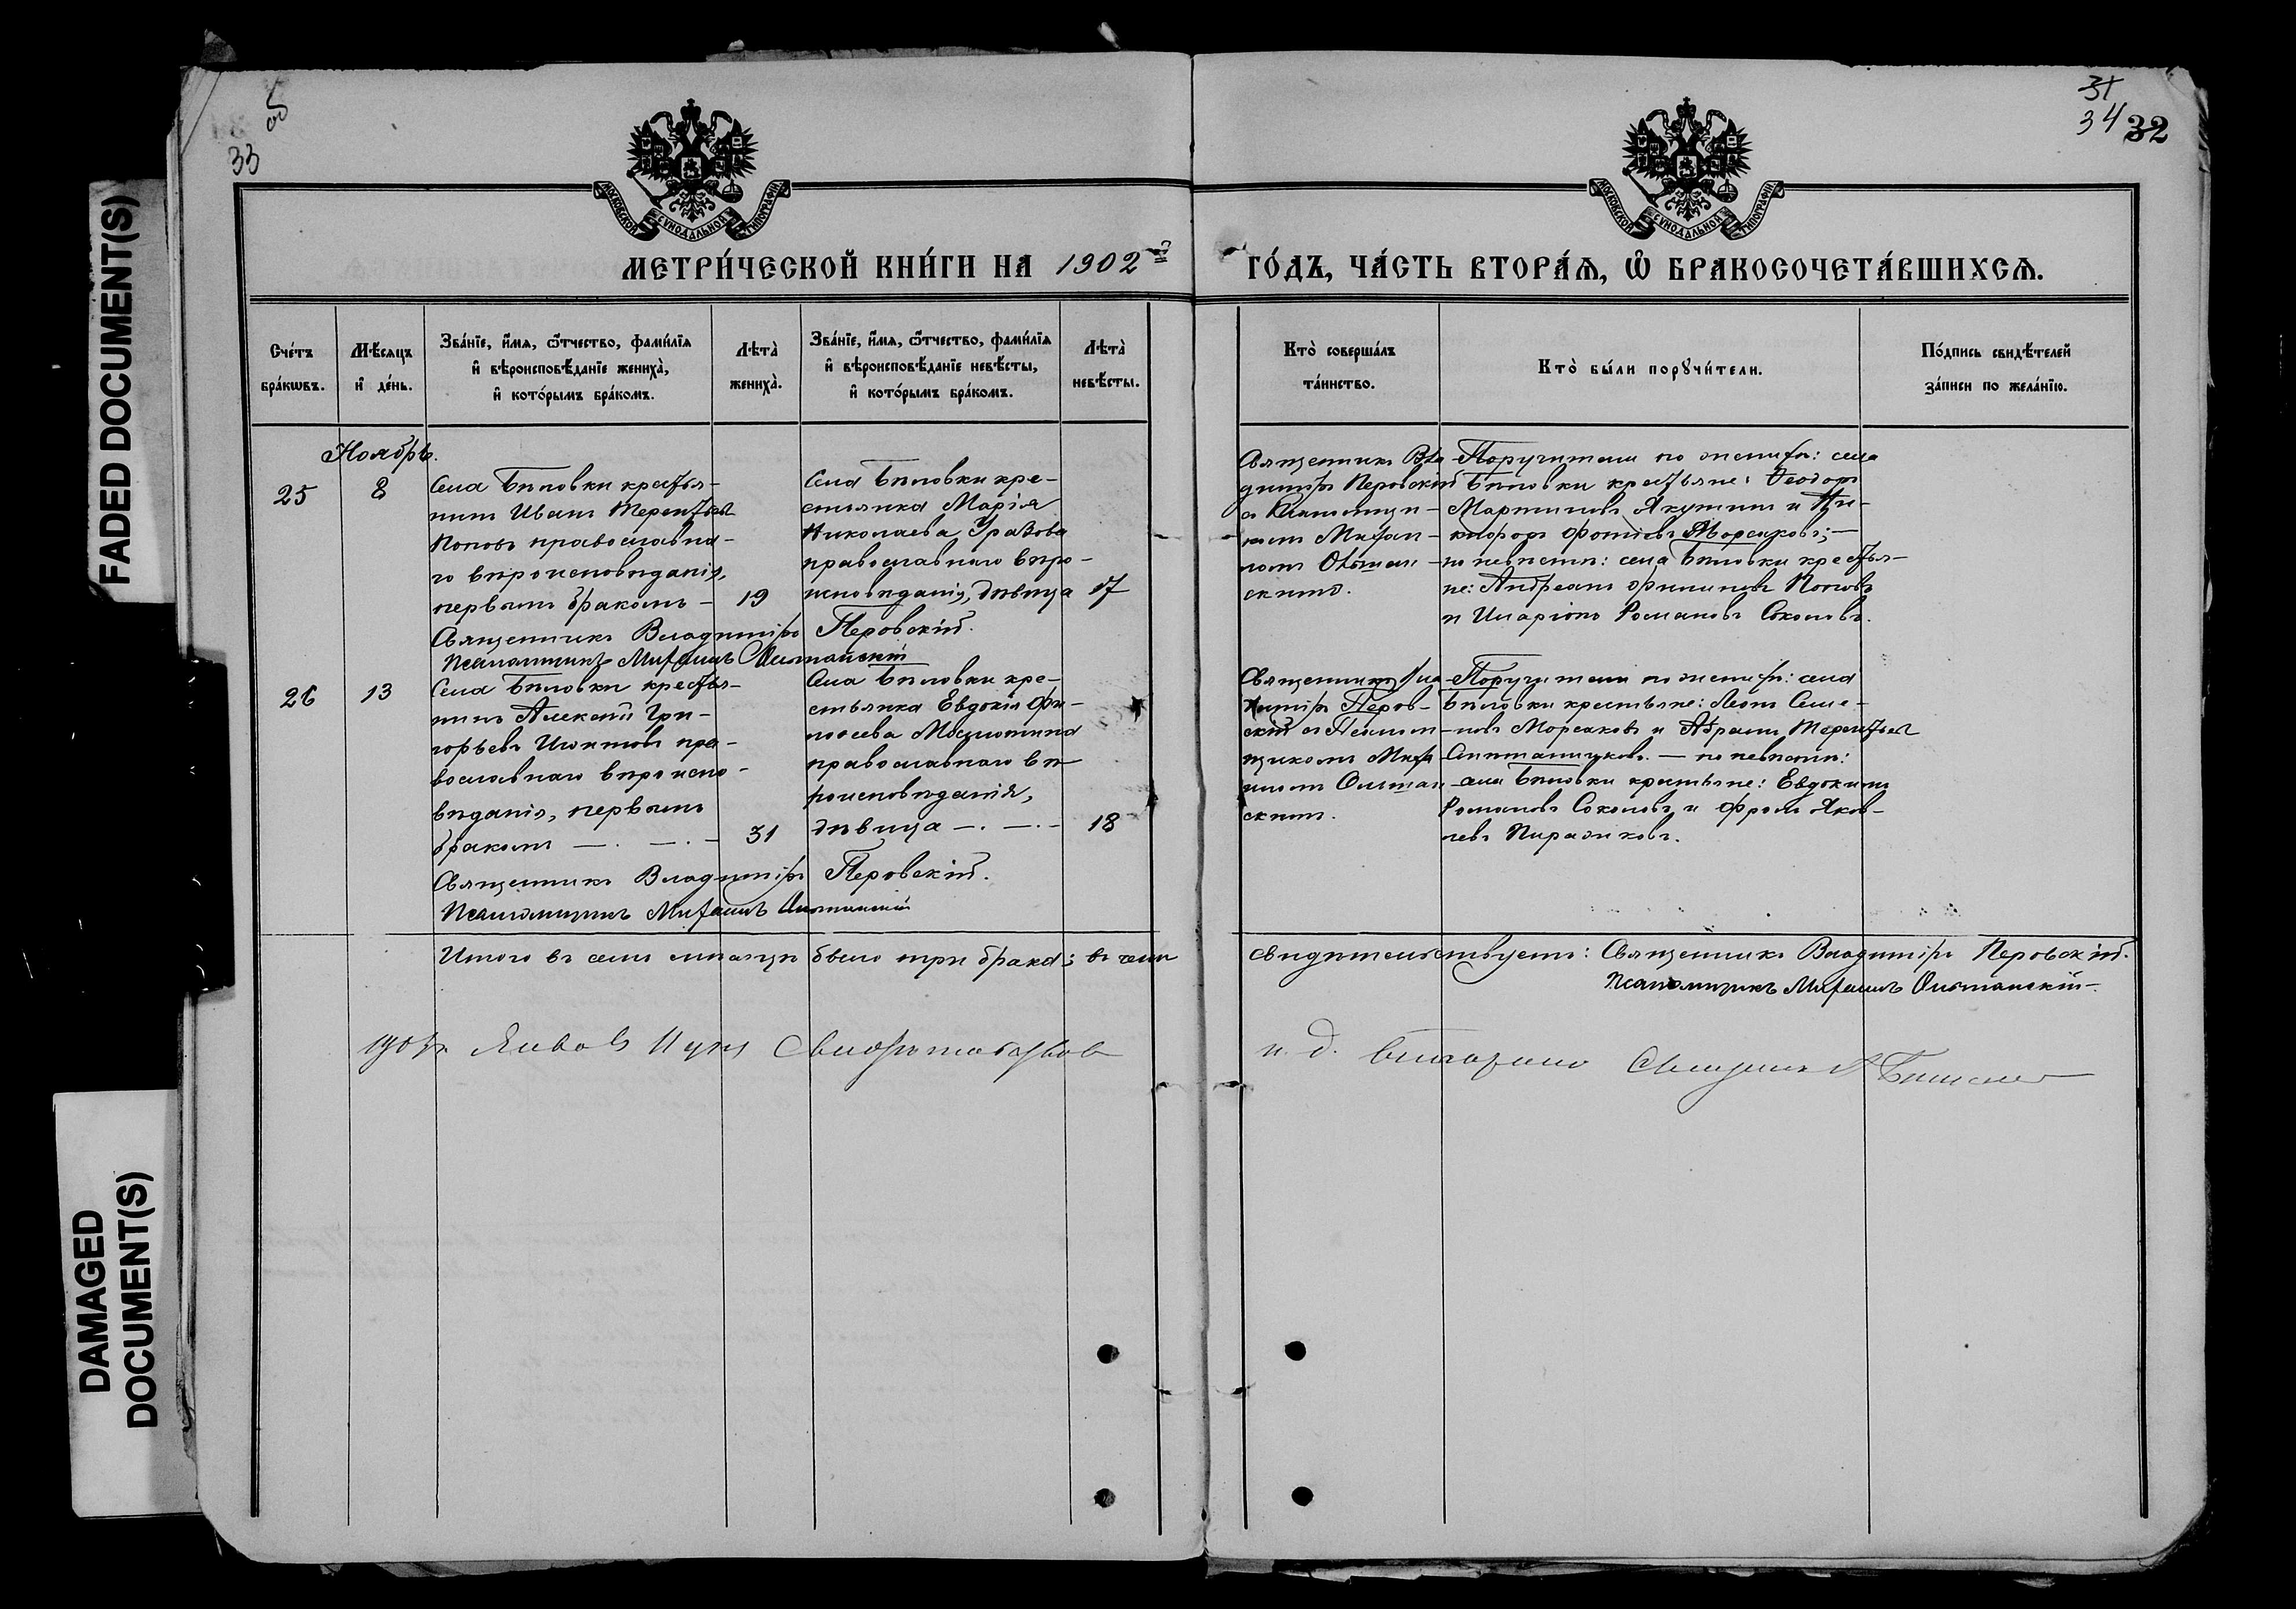 FADED DOCUMENT(S)
DAMAGED
DOCUMENT(S)
33
об
31
34 32
МОСКОВСКОЙ СѴНОДАЛЬНОЙ ТИПОГРАФІИ
МОСКОВСКОЙ СѴНОДАЛЬНОЙ ТИПОГРАФІИ
МЕТРИ́ЧЕСКОЙ КНИ́ГИ НА 1902й
ГО́ДЪ, ЧА́СТЬ ВТОРА́Ѧ, Ѽ БРАКОСОЧЕТА́ВШИХСѦ.
Сче́тъ
бра́кѡвъ.
Мѣ́сяцъ
и҆ де́нь.
Зва́нїе, и҆́мѧ, ѻ҆́тчество, фами́лїѧ
и҆ вѣроисповѣ́данїе жениха̀,
и҆ кото́рымъ бра́комъ.
Лѣта̀
жениха̀.
Зва́нїе, и҆́мѧ, ѻ҆́тчество, фами́лїѧ
и҆ вѣроисповѣ́данїе невѣ́сты,
и҆ кото́рымъ бра́комъ.
Лѣта̀
невѣ́сты.
Кто̀ соверша́лъ
та́инство.
Кто̀ бы́ли порꙋчи́тели.
По́дпись свидѣ́телей
за́писи по жела́нїю.
Ноябрь.
25
8
Села Бѣловки крестья-
нинъ Иванъ Терентьевъ
Поповъ православна-
го вѣроисповѣданія,
первымъ бракомъ –
19
Села Бѣловки кре-
стьянка Марія
Николаева Уразова
православнаго вѣро-
исповѣданія, дѣвица
17
Священникъ Вла-
диміръ Перовскій
съ Псаломщи-
комъ Михаи-
ломъ Ольшан-
скимъ.
Поручители по женихѣ: села
Бѣловки крестьяне: Ѳеодоръ
Мартиновъ Якунинъ и Ни-
кифоръ Фотіевъ Морсаковъ; –
по невѣстѣ: села Бѣловки крестья-
не: Андреанъ Филиповъ Поповъ
и Иларіонъ Романовъ Соколовъ.
Священникъ Владиміръ Перовскій.
Псаломщикъ Михаилъ Ольшанскій
26
13
Села Бѣловки крестья-
нинъ Алексѣй Гри-
горьевъ пра-
вославнаго вѣроиспо-
вѣданія, первымъ
бракомъ –. –. –
31
Села Бѣловки кре-
стьянка Евдокія
православнаго вѣ-
роисповѣданія,
дѣвица –. –. –
18
Священникъ Вла-
диміръ Перов-
скій съ Псалом-
щикомъ Миха-
иломъ Ольшан-
скимъ.
Поручители по женихѣ: села
Бѣловки крестьяне: Леонъ Семе-
новъ Морсаковъ и Абрамъ Терентьевъ
– по невѣстѣ:
села Бѣловки крестьяне: Евдокимъ
Романовъ Соколовъ и Фролъ Яков-
левъ Пиражковъ.
Священникъ Владиміръ Перовскій.
Псаломщикъ Михаилъ Ольшанскій
Итого въ семъ мѣсяцѣ было три брака; въ чемъ
свидѣтельствуетъ: Священникъ Владиміръ Перовскій.
Псаломщикъ Михаилъ Ольшанскій –
и. д.